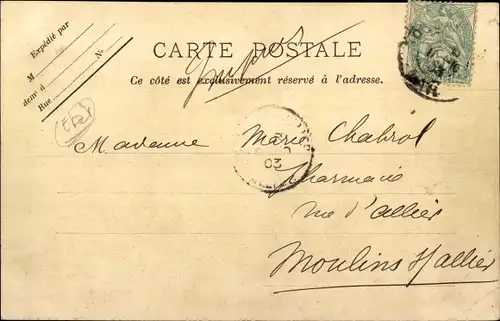 Expédié par
M
demt à
Rue
No
CARTE POSTALE
Ce côté est exclusivement réservé à l'adresse.
Madame Marie Chabrol
Pharmacie
rue d'allier
Moulins s/allier
03